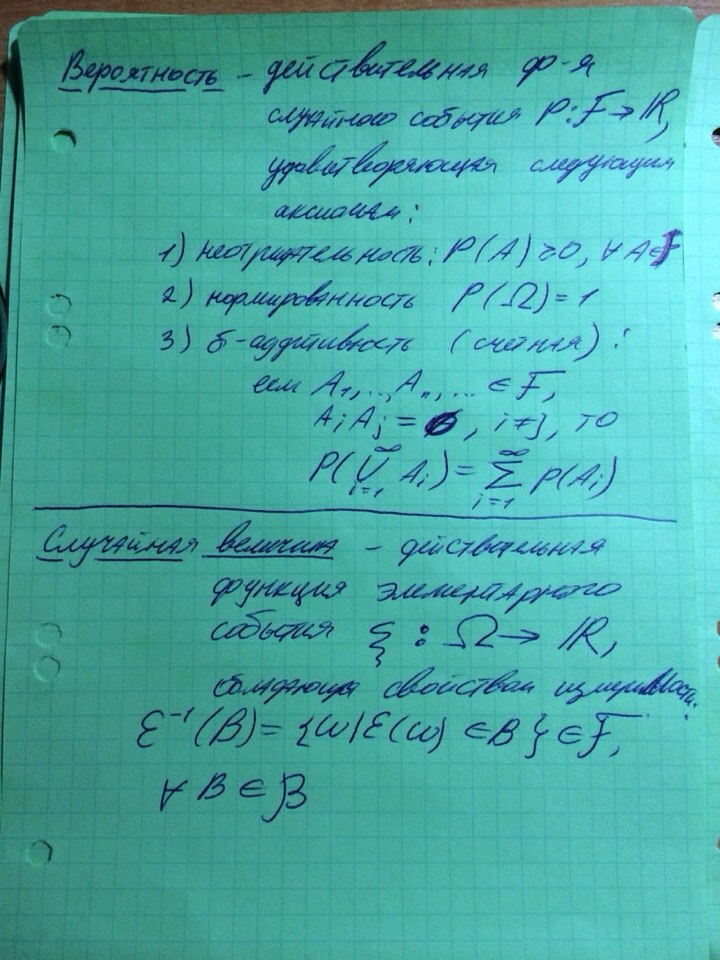 Вероятность - действительная ф-я
случайного события P: F → ℝ,
удовлетворяющая следующим
аксиомам:
1) неотрицательность: P(A) ≥ 0, ∀ A ∈ F
2) нормированность P(Ω) = 1
3) σ-аддитивность (счетная):
если A₁, ..., Aₙ, ... ∈ F,
AᵢAⱼ = ∅, i ≠ j, то
P(⋃ᵢ₌₁^∞ Aᵢ) = ∑ᵢ₌₁^∞ P(Aᵢ)
Случайная величина - действительная
функция элементарного
события ξ : Ω → ℝ,
обладающая свойством измеримости:
ξ⁻¹(B) = {ω | ξ(ω) ∈ B} ∈ F,
∀ B ∈ ℬ